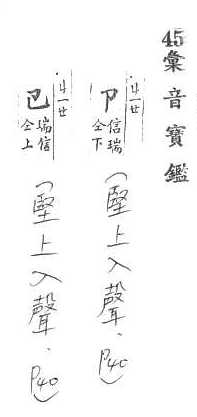 45 彙音寶鑑
卩 ㄐㄧㄝ
信瑞
仝下
(堅上入聲. P40)
㔾 ㄐㄧㄝ
瑞信
仝上
(堅上入聲. P40)